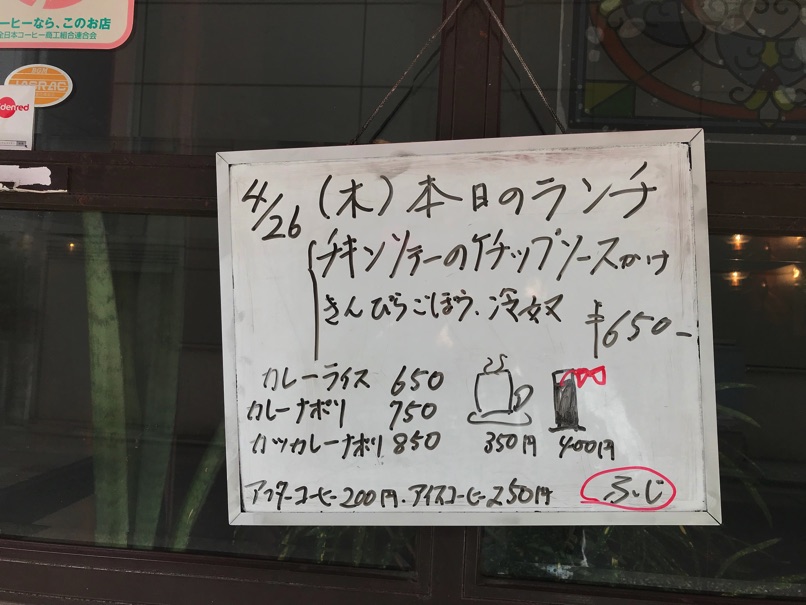 ーヒーなら、このお店
全日本コーヒー商工組合連合会
4/26 (木) 本日のランチ
チキンソテーのケチャップソースかけ
きんぴらごぼう、冷奴
¥650-
カレーライス 650
カレーナポリ 750
カツカレーナポリ 850
350円 400円
アフターコーヒー200円・アイスコーヒー250円
ふじ